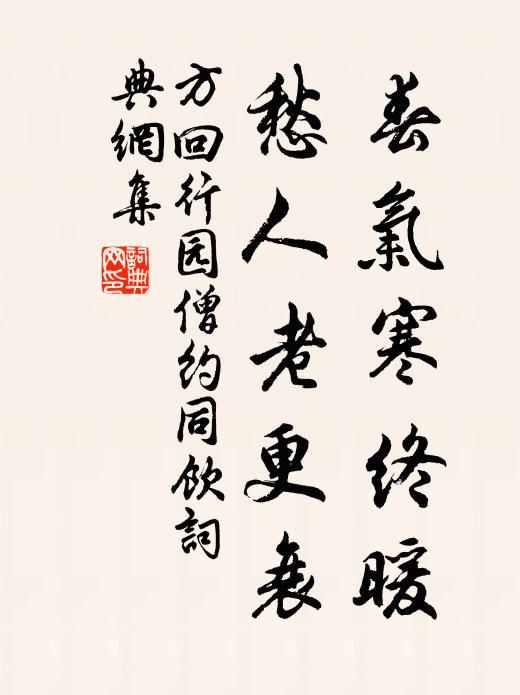 春氣寒終暖
愁人老更衰
方回行园僧約同飲詞
典網集
詞典網印